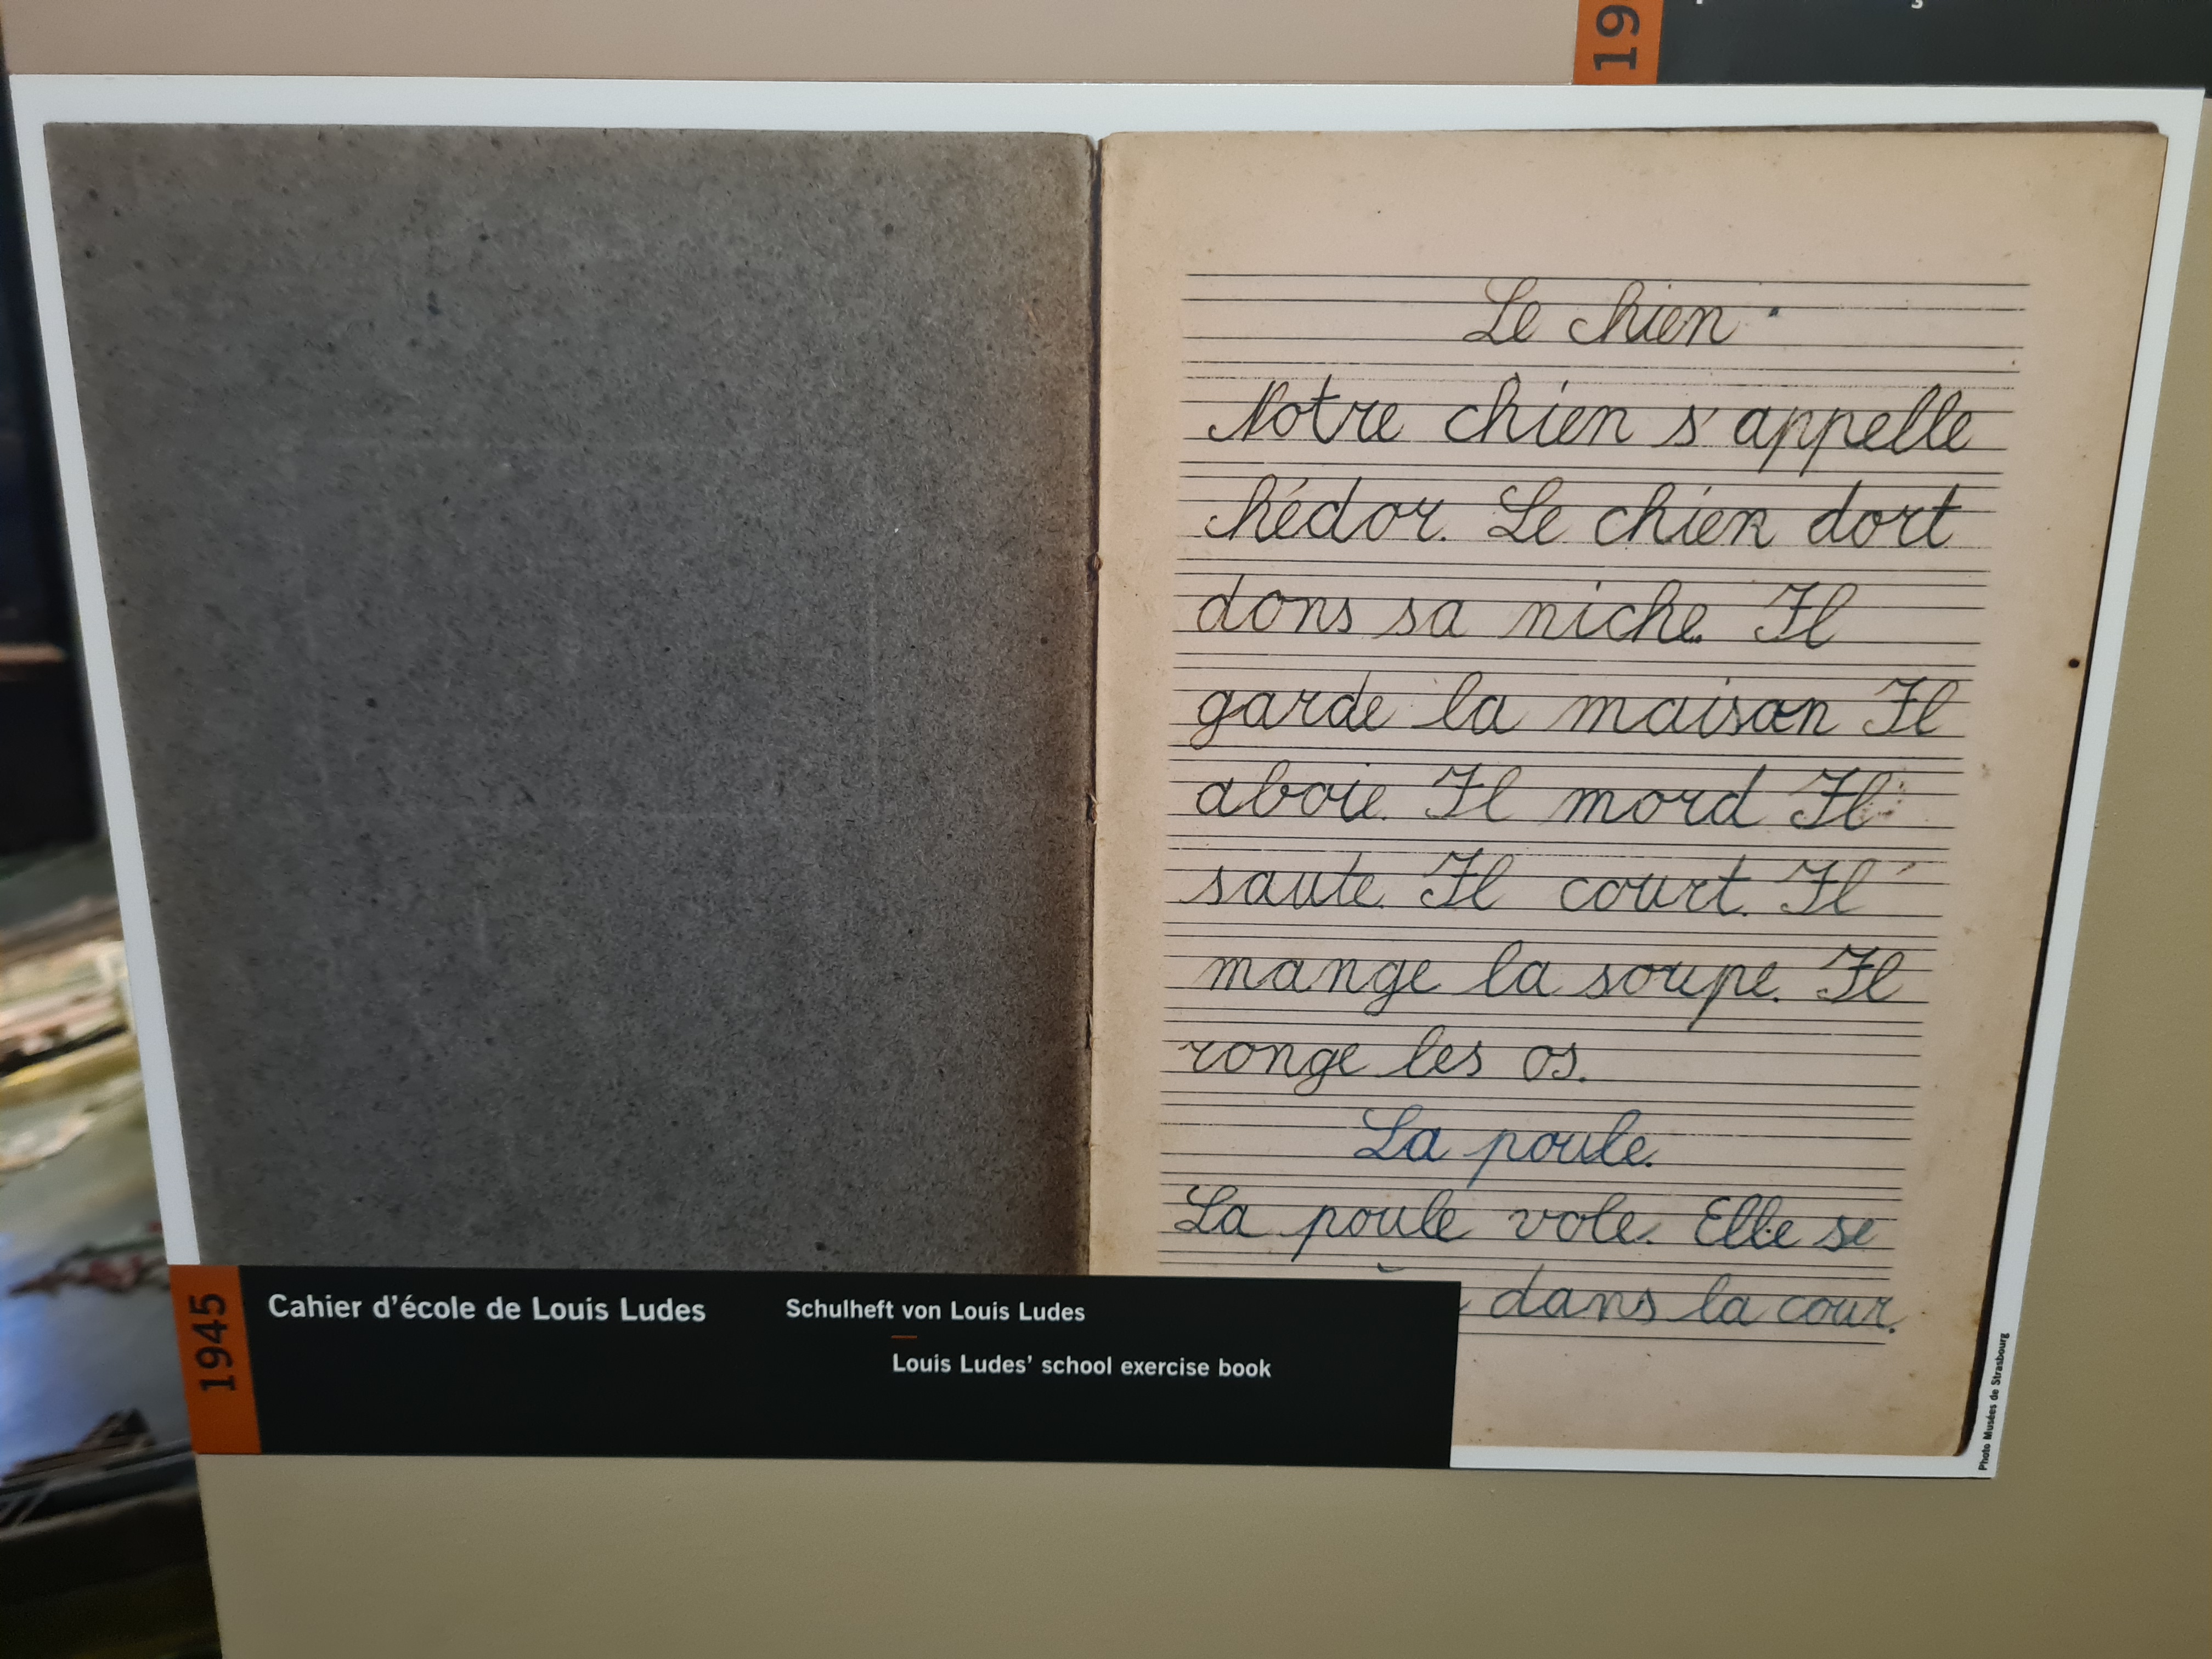 19
Le chien
Notre chien s'appelle
hédor. Le chien dort
dons sa niche. Il
garde la maison Il
aboie. Il mord Il
saute. Il court. Il
mange la soupe. Il
ronge les os.
La poule.
La poule vole. Elle se
dans la cour.
1945
Cahier d'école de Louis Ludes
Schulheft von Louis Ludes
Louis Ludes' school exercise book
Photo Musées de Strasbourg